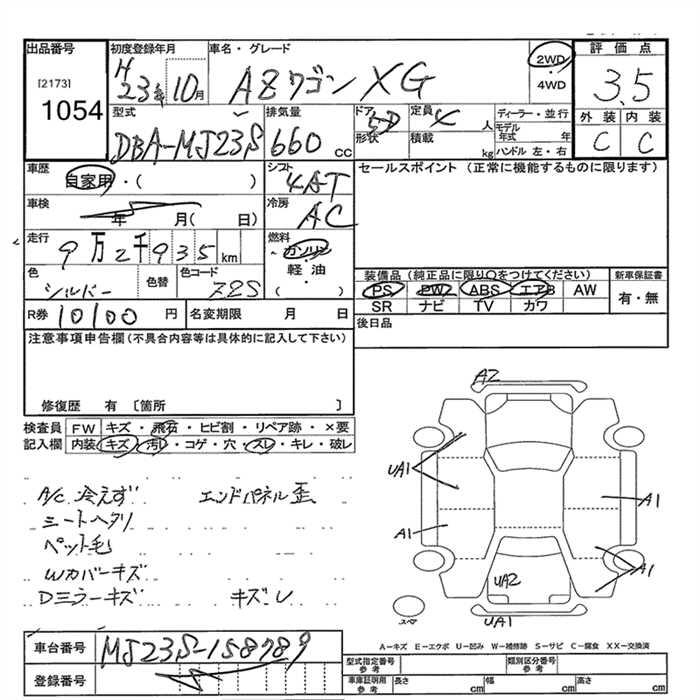 出品番号 初度登録年月 車名・グレード 評価点
[2173] 1054
H23年10月 AZワゴン XG 2WD・4WD 3.5
型式 排気量 ドア 定員 ディーラー・並行 外装 内装
DBA-MJ23S 660cc 5D 4人 モデル年式 年 C C
形状 積載 kg ハンドル 左・右
車歴 シフト セールスポイント(正常に機能するものに限ります)
自家用・( ) 4AT
車検 冷房
年 月( 日) AC
走行 燃料
9万2千935km ガソリン
色 色替 色コード 軽油 装備品(純正品に限り○をつけてください) 新車保証書
シルバー Z2S ( ) PS PW ABS エアB AW 有・無
SR ナビ TV カワ
R券 10100円 名変期限 月 日 後日品
注意事項申告欄(不具合内容等は具体的に記入して下さい)
修復歴 有〔箇所 〕
検査員 FW キズ・飛石・ヒビ割・リペア跡・×要
記入欄 内装 キズ・汚レ・コゲ・穴・スレ・キレ・破レ
A/C 冷えず エンドパネル歪
シートヘタリ
ペット毛
Wカバーキズ
Dミラーキズ キズ・レ
A2
UA1
A1 A1
A1
UA2
スペア UA1
A-キズ E-エクボ U-凹み W-補修跡 S-サビ C-腐食 XX-交換済
車台番号 MJ23S-158789
登録番号
型式指定番号 参考 類別区分番号 参考
車庫証明用 参考 長さ cm 幅 cm 高さ cm